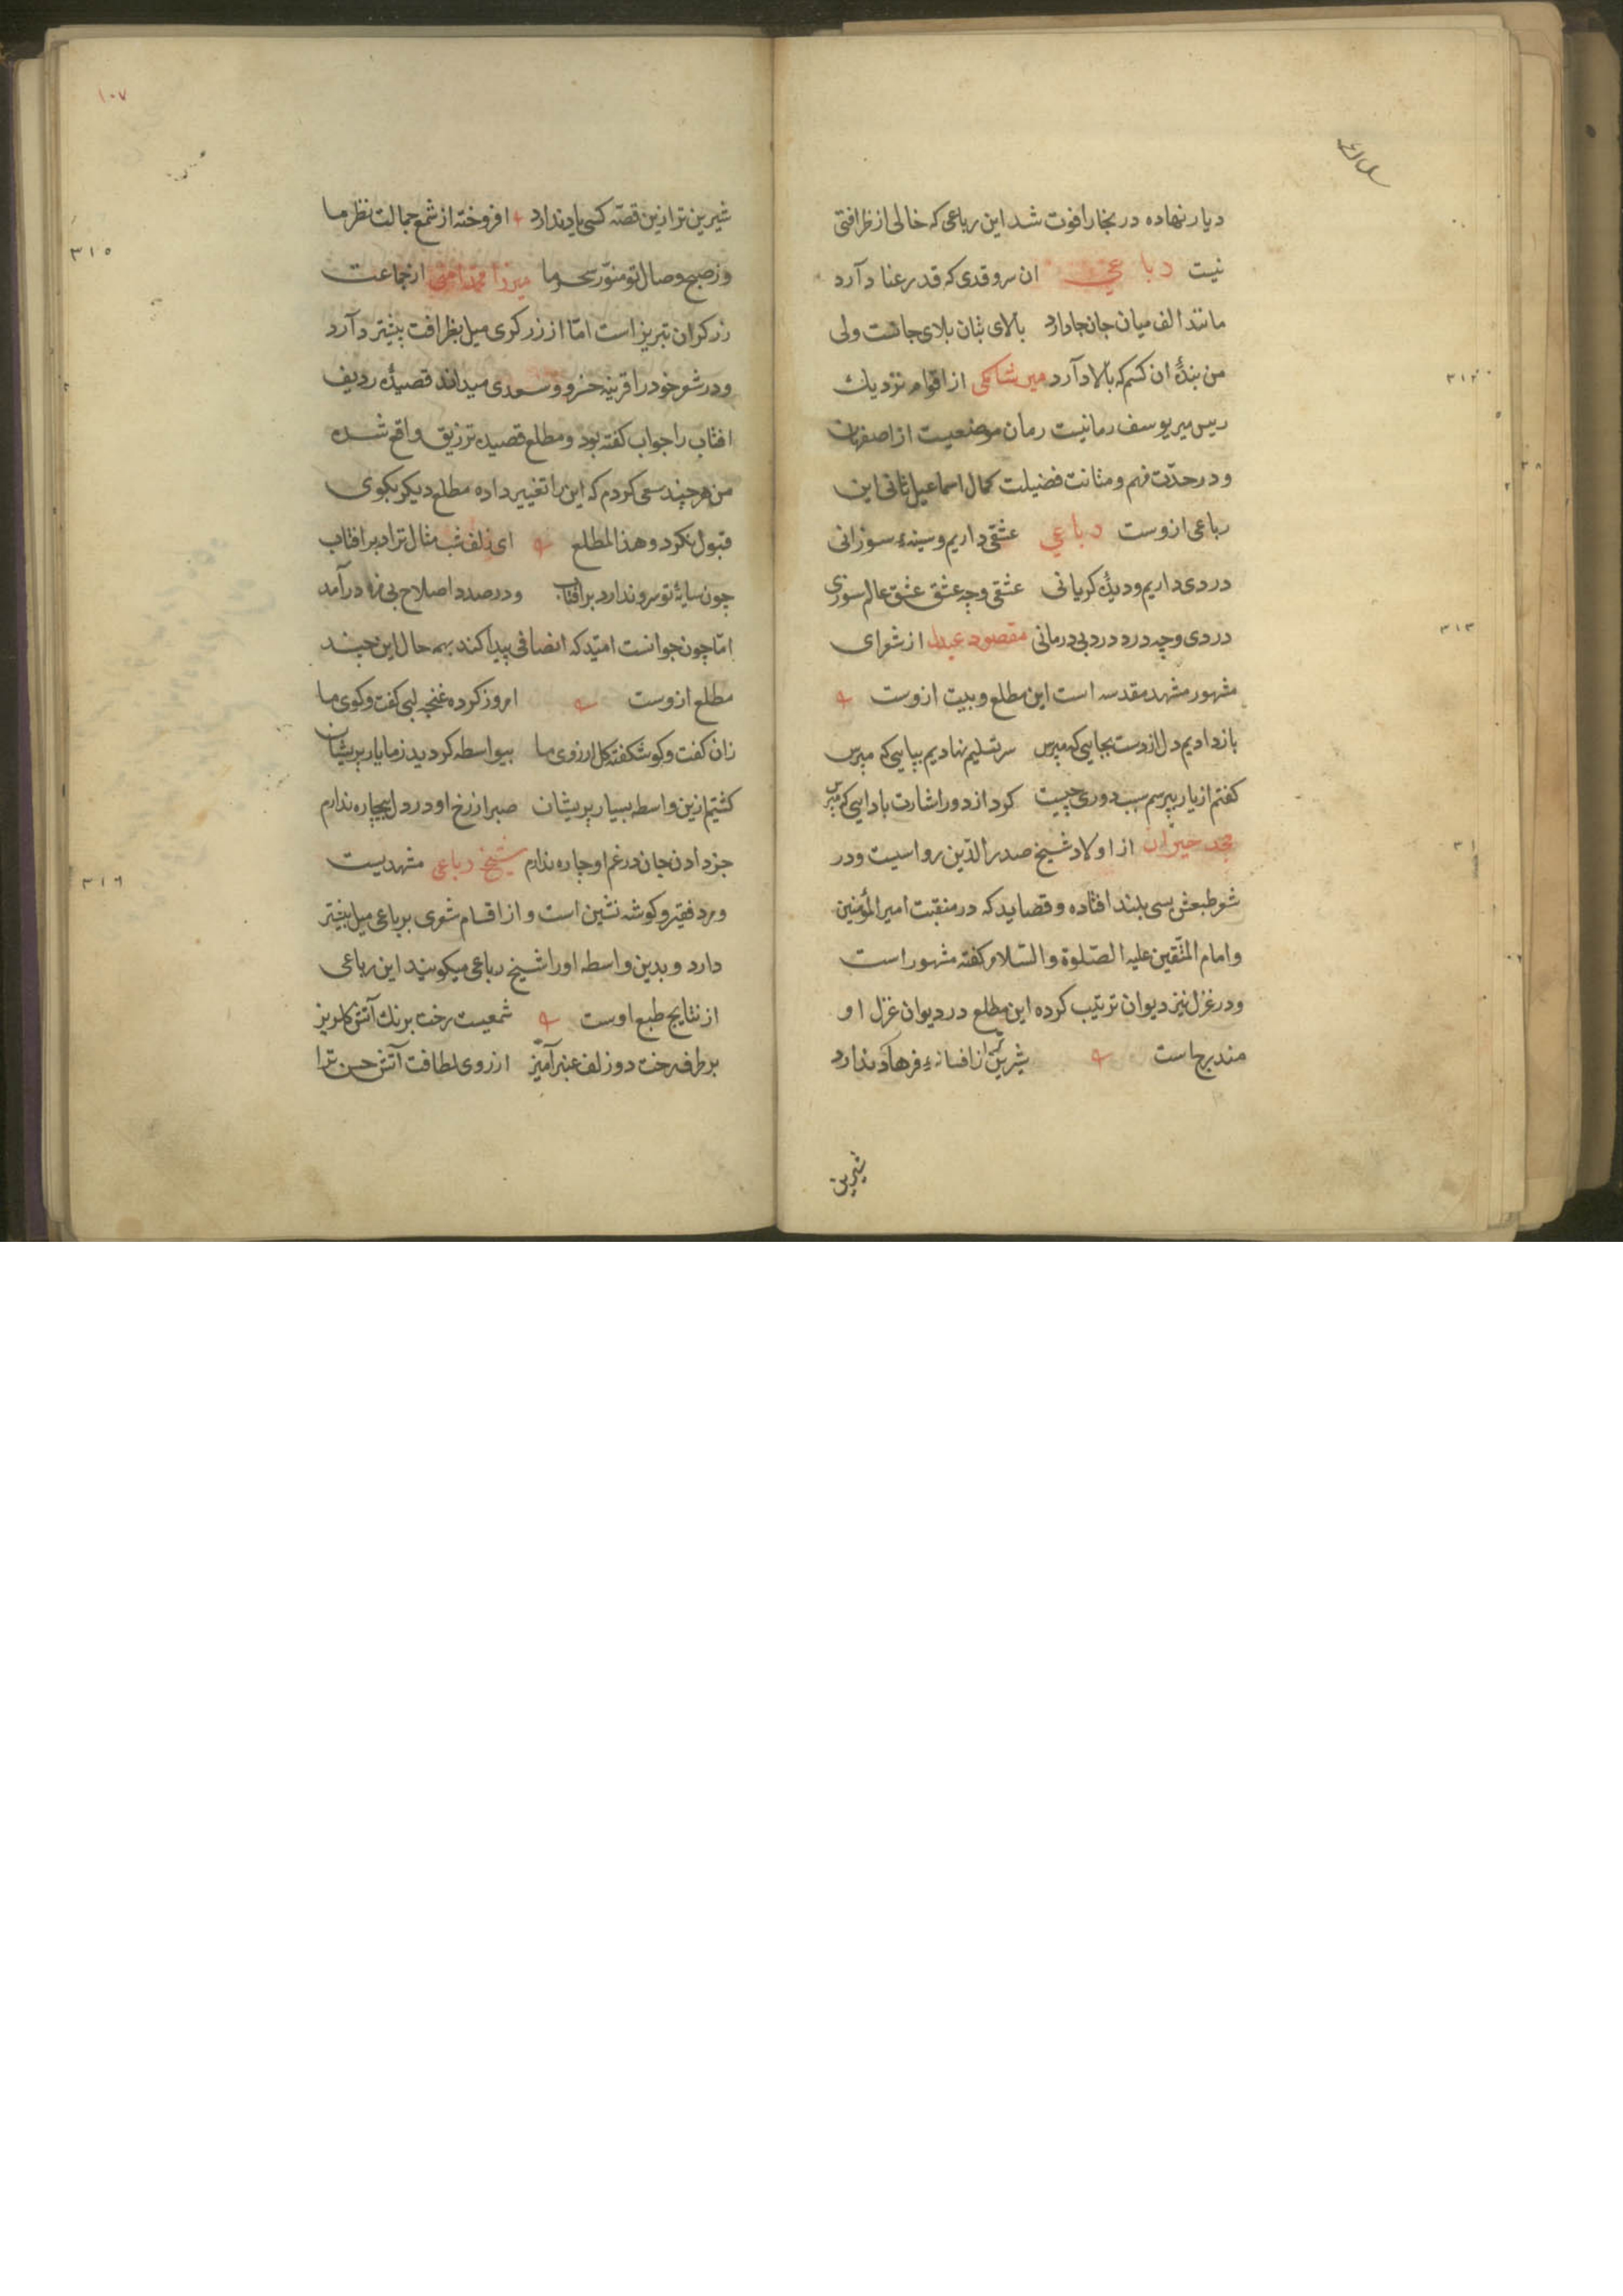 دیار نهاده در بخارا فوت شد این رباعی که خالی از ظرافتی
نیست رباعی ان سرو قدی که قد رعنا دارد
مانند الف میان جان جا دارد بالای بتان بلای جانست ولی
من بندهٔ ان کسم که بالا دارد میر شامکی از اقوام نزدیک
ریس میر یوسف رمانیست رمان موضعیست از اصفهان
و در حدّت فهم و متانت فضیلت کمال اسماعیل ثانی این
رباعی ازوست رباعی عشقی داریم و سینهٔ سوزانی
دردی داریم و دیدهٔ کریانی عشقی و چه عشق عشق عالم سوزی
دردی و چه درد درد بی درمانی مقصود عبدل از شعرای
مشهور مشهد مقدسه است این مطلع و بیت ازوست
باز دادیم دل از دست بجایی که مپرس سر تسلیم نهادیم بپایی که مپرس
کفتم از یار بپرسم سبب دوری چیست کرد از دور اشارت بادایی که مپرس
حیرانی از اولاد شیخ صدر الدّین رواسیست و در
شعر طبعش بسی بلند افتاده و قصاید که در منقبت امیر المؤمنین
و امام المتّقین علیه الصّلوة و السّلام کفته مشهور است
و در غزل نیز دیوان ترتیب کرده این مطلع در دیوان غزل او
مندرجست شیرین از افسانهٔ فرهاد ندارد
شیرین
۱۰۷
شیرین تر ازین قصّه کسی یاد ندارد افروخته از شمع جمالت نظر ما
وز صبح وصال تو منوّر سحر ما میرزا محمد امنی از جماعت
زرکران تبریز است امّا از زرکری میل بظرافت بیشتر دارد
و در شعر خود را قرینه خسرو و سعدی میداند قصیدهٔ ردیف
افتاب را جواب کفته بود و مطلع قصیده ترزیق واقع شده
من هر چند سعی کردم که این را تغییر داده مطلع دیکر بکوی
قبول نکرد و هذا المطلع ای زلف شب مثال ترا در بر افتاب
چون سایهٔ تو سرو ندارد بر افتاب و در صدد اصلاح بی مزه درآمد
امّا چون جوانست امّید که انصافی پیدا کند بهمه حال این چند
مطلع ازوست امروز کرده غنچه لبی کفت و کوی ما
زان کفت و کو شکفته کل ارزوی ما بیواسطه کردید ز ما یار پریشان
کشتیم ازین واسطه بسیار پریشان صبر از رخ او در دل بیچاره ندارم
جز دادن جان در غم او چاره ندارم شیخ رباعی مشهدیست
مرد فقیر و کوشه نشین است و از اقسام شعری برباعی میل بیشتر
دارد و بدین واسطه او را شیخ رباعی میکویند این رباعی
از نتایج طبع اوست شمعیست رخت برنک آتش کلریز
بر طرف رخت دو زلف عنبر آمیز از روی لطافت آتش حسن ترا
۳۱۲
۳۱۳
۳۱۵
۳۱۶